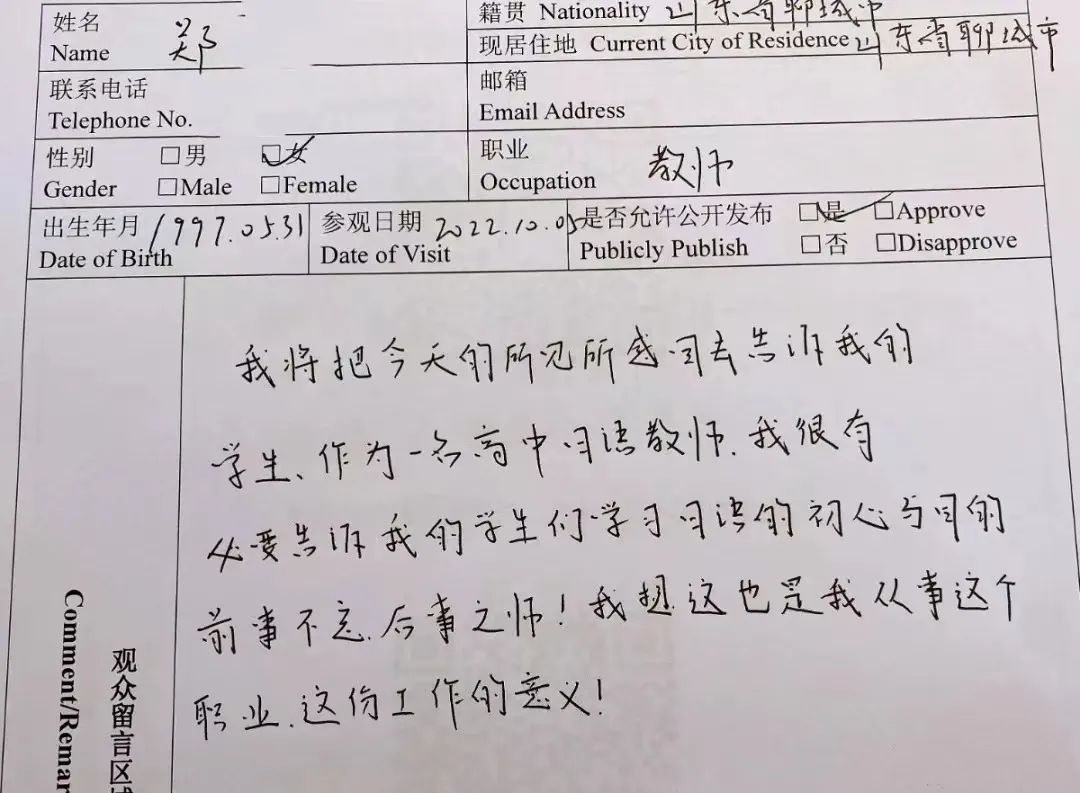 姓名 郑
Name
籍贯 Nationality 山东省聊城市
现居住地 Current City of Residence 山东省聊城市
联系电话
Telephone No.
邮箱
Email Address
性别 □男 □女
Gender □Male □Female
职业 教师
Occupation
出生年月 1997.05.31
Date of Birth
参观日期 2022.10.05
Date of Visit
是否允许公开发布 □是 □Approve
Publicly Publish □否 □Disapprove
我将把今天的所见所感回去告诉我的
学生、作为一名高中日语教师、我很有
必要告诉我的学生们学习日语的初心与目的
前事不忘、后事之师！我想这也是我从事这个
职业、这份工作的意义！
观众留言区域
Comment/Remar